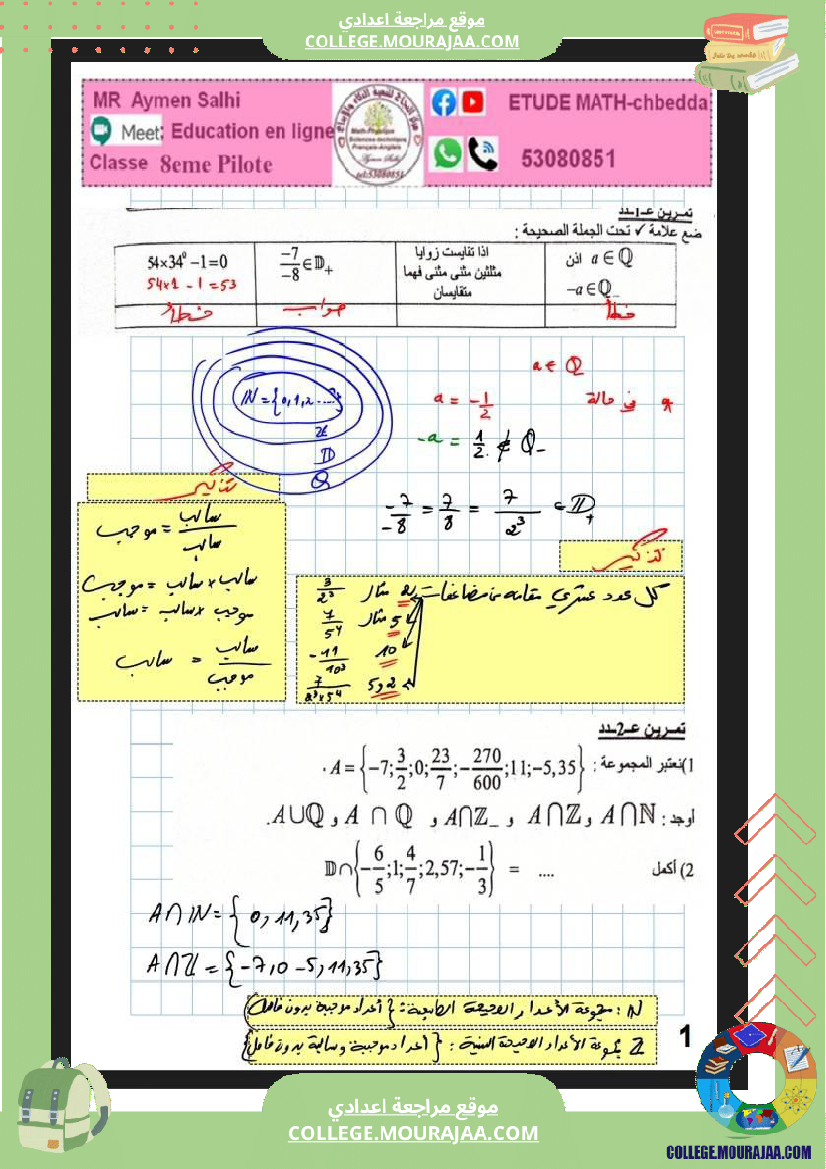 موقع مراجعة اعدادي
COLLEGE.MOURAJAA.COM
MR Aymen Salhi
Meet: Education en ligne
Classe 8eme Pilote
ETUDE MATH-chbedda
53080851
تمرين عـ1ـدد
ضع علامة ✓ تحت الجملة الصحيحة :
a ∈ ℚ اذن
-a ∈ ℚ_
اذا تقايست زوايا
مثلثين مثنى مثنى فهما
متقايسان
-7/-8 ∈ 𝔻+
54×34⁰ -1=0
54×1 - 1 = 53
خطأ
صواب
خطأ
a ∈ Q
* في حالة a = -1/2
-a = 1/2 ∉ Q_
IN = {0,1,2.....}
Z
ID
Q
-7/-8 = 7/8 = 7/2³ ∈ ID+
تذكير
سالب/سالب = موجب
سالب × سالب = موجب
موجب × سالب = سالب
سالب/موجب = سالب
تذكير
كل عدد عشري مقامه من مضاعفات 2 مثال 3/2³
5 مثال 7/5⁴
10 -11/10³
2 و 5 7/2³×5⁴
تمرين عـ2ـدد
1)نعتبر المجموعة : A = {-7; 3/2; 0; 23/7; -270/600; 11; -5,35}.
أوجد : A∩ℕ و A∩ℤ و A∩ℤ_ و A ∩ ℚ و A∪ℚ.
2) أكمل 𝔻∩{-6/5; 1; 4/7; 2,57; -1/3} = ....
A∩IN = { 0, 11, 35}
A∩Z = {-7, 0 -5, 11, 35}
IN : مجموعة الأعداد الصحيحة الطبيعية : {أعداد موجبة بدون فاصل}
Z مجموعة الأعداد الصحيحة النسبية : {أعداد موجبة و سالبة بدون فاصل}
1
موقع مراجعة اعدادي
COLLEGE.MOURAJAA.COM
COLLEGE.MOURAJAA.COM